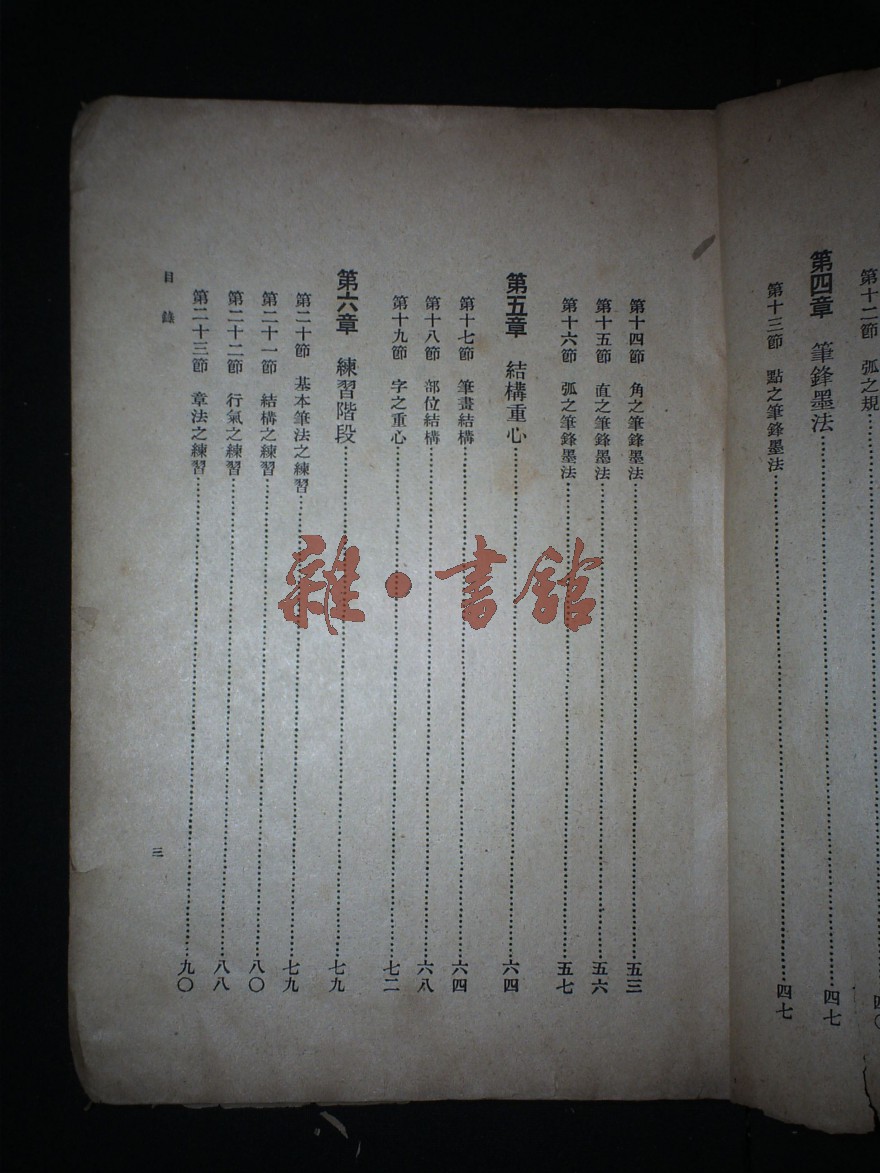 第十二節　弧之規……四〇
第四章　筆鋒墨法……四七
第十三節　點之筆鋒墨法……四七
第十四節　角之筆鋒墨法……五三
第十五節　直之筆鋒墨法……五六
第十六節　弧之筆鋒墨法……五七
第五章　結構重心……六四
第十七節　筆畫結構……六四
第十八節　部位結構……六八
第十九節　字之重心……七二
第六章　練習階段……七九
第二十節　基本筆法之練習……七九
第二十一節　結構之練習……八〇
第二十二節　行氣之練習……八八
第二十三節　章法之練習……九〇
目錄
三
雜·書館